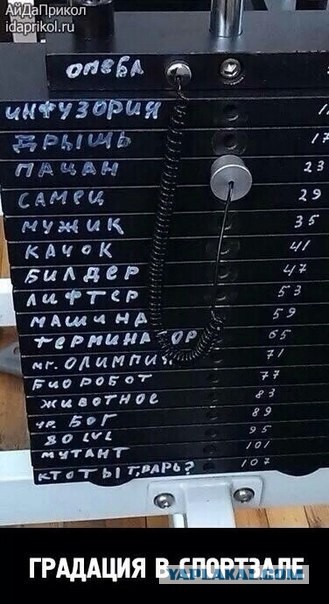 АйДаПрикол
idaprikol.ru
ОМЕБА
ИНФУЗОРИЯ
ДРЫЩЬ 17
ПАЦАН 23
САМЕЦ 29
МУЖИК 35
КАЧОК 41
БИЛДЕР 47
ЛИФТЕР 53
МАШИНА 59
ТЕРМИНАТОР 65
МГ. ОЛИМПИЯ 71
БИОРОБОТ 77
ЖИВОТНОЕ 83
УР. БОГ 89
80 LVL 95
МУТАНТ 101
КТО ТЫ ТВАРЬ? 107
ГРАДАЦИЯ В СПОРТЗАЛЕ
YAPLAKAL.COM